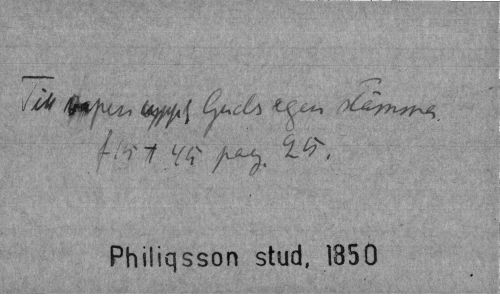 Till vapen uppå Guds egen stämma
f 15 + 45 pag. 25.
Philiqsson stud, 1850